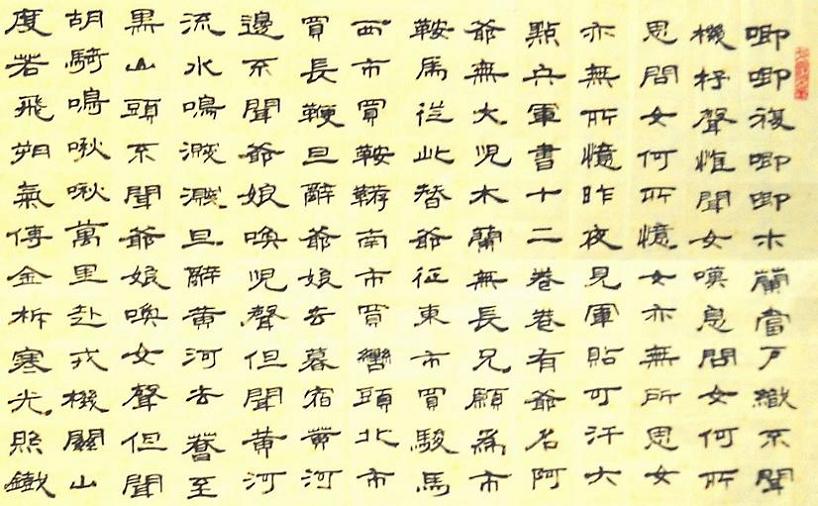 唧唧復唧唧木蘭當戶織不聞
機杼聲惟聞女嘆息問女何所
思問女何所憶女亦無所思女
亦無所憶昨夜見軍貼可汗大
點兵軍書十二卷卷有爺名阿
爺無大兒木蘭無長兄願為市
鞍馬從此替爺征東市買駿馬
西市買鞍韉南市買轡頭北市
買長鞭旦辭爺娘去暮宿黄河
邊不聞爺娘喚兒聲但聞黄河
流水鳴濺濺旦辭黄河去暮至
黑山頭不聞爺娘喚女聲但聞
胡騎鳴啾啾萬里赴戎機關山
度若飛朔氣傳金柝寒光照鐵